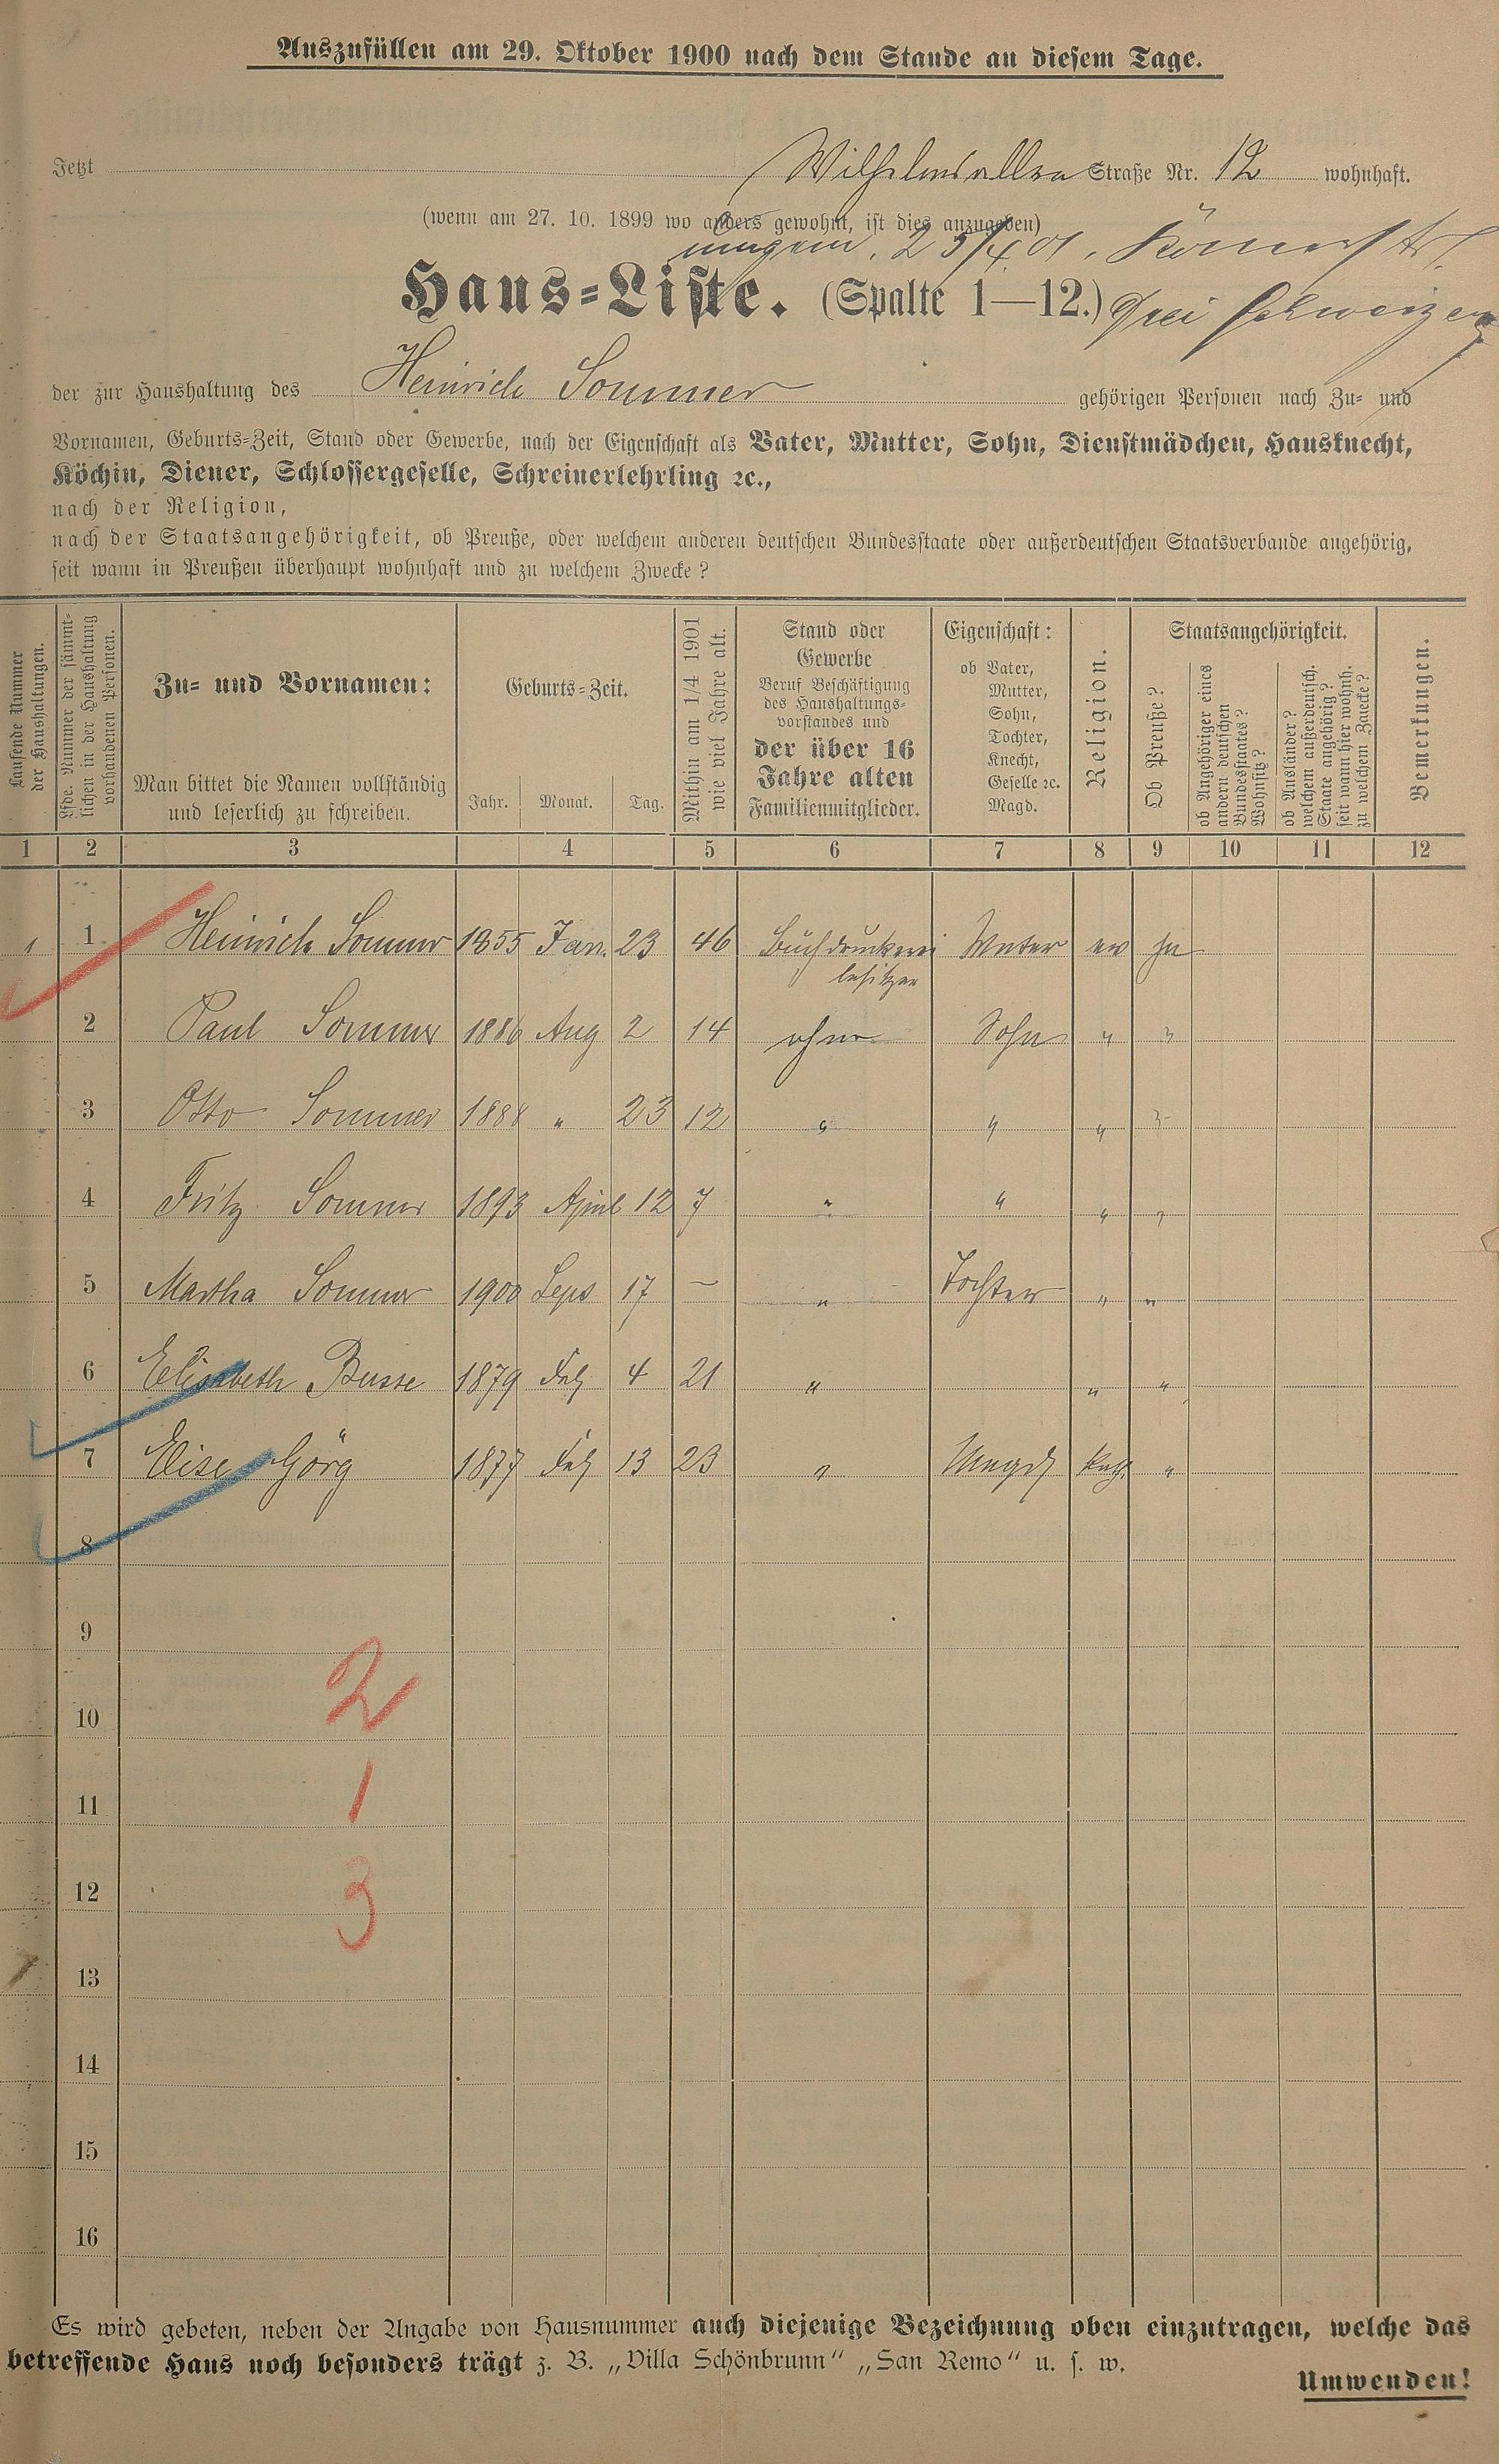 Auszufüllen am 29. Oktober 1900 nach dem Stande an diesem Tage.
Jetzt Wilhelmsallee Straße Nr. 12 wohnhaft.
(wenn am 27. 10. 1899 wo anders gewohnt, ist dies anzugeben)
umgez. 25/4 01. Römerstr.
Haus=Liste. (Spalte 1—12.) Drei Schweizer
der zur Haushaltung des Heinrich Sommer gehörigen Personen nach Zu= und
Vornamen, Geburts=Zeit, Stand oder Gewerbe, nach der Eigenschaft als Vater, Mutter, Sohn, Dienstmädchen, Hausknecht,
Köchin, Diener, Schlossergeselle, Schreinerlehrling ꝛc.,
nach der Religion,
nach der Staatsangehörigkeit, ob Preuße, oder welchem anderen deutschen Bundesstaate oder außerdeutschen Staatsverbande angehörig,
seit wann in Preußen überhaupt wohnhaft und zu welchem Zwecke?
Laufende Nummer
der Haushaltungen.
Lfde. Nummer der sämmt-
lichen in der Haushaltung
vorhandenen Personen.
Zu= und Vornamen:
Man bittet die Namen vollständig
und leserlich zu schreiben.
Geburts=Zeit.
Jahr. Monat. Tag.
Mithin am 1/4 1901
wie viel Jahre alt.
Stand oder
Gewerbe
Beruf Beschäftigung
des Haushaltungs-
vorstandes und
der über 16
Jahre alten
Familienmitglieder.
Eigenschaft:
ob Vater,
Mutter,
Sohn,
Tochter,
Knecht,
Geselle ꝛc.
Magd.
Religion.
Staatsangehörigkeit.
Ob Preuße?
ob Angehöriger eines
andern deutschen
Bundesstaates?
Wohnsitz?
ob Ausländer?
welchem außerdeutsch.
Staate angehörig?
seit wann hier wohnh.
zu welchem Zwecke?
Bemerkungen.
1 2 3 4 5 6 7 8 9 10 11 12
1 1 Heinrich Sommer 1855 Jan. 23 46 Buchdruckerei Vater ev ja
besitzer
2 Paul Sommer 1886 Aug 2 14 ohne Sohn " "
3 Otto Sommer 1888 " 23 12 " " " "
4 Fritz Sommer 1893 April 12 7 " " " "
5 Martha Sommer 1900 Seps 17 — " Tochter " "
6 Elisabeth Busse 1879 4 21 " " "
7 Elise Görg 1877 13 23 " Magd kath. "
8
9
2
10
1
11
12
3
13
14
15
16
Es wird gebeten, neben der Angabe von Hausnummer auch diejenige Bezeichnung oben einzutragen, welche das
betreffende Haus noch besonders trägt z. B. „Villa Schönbrunn" „San Remo" u. s. w.
Umwenden!